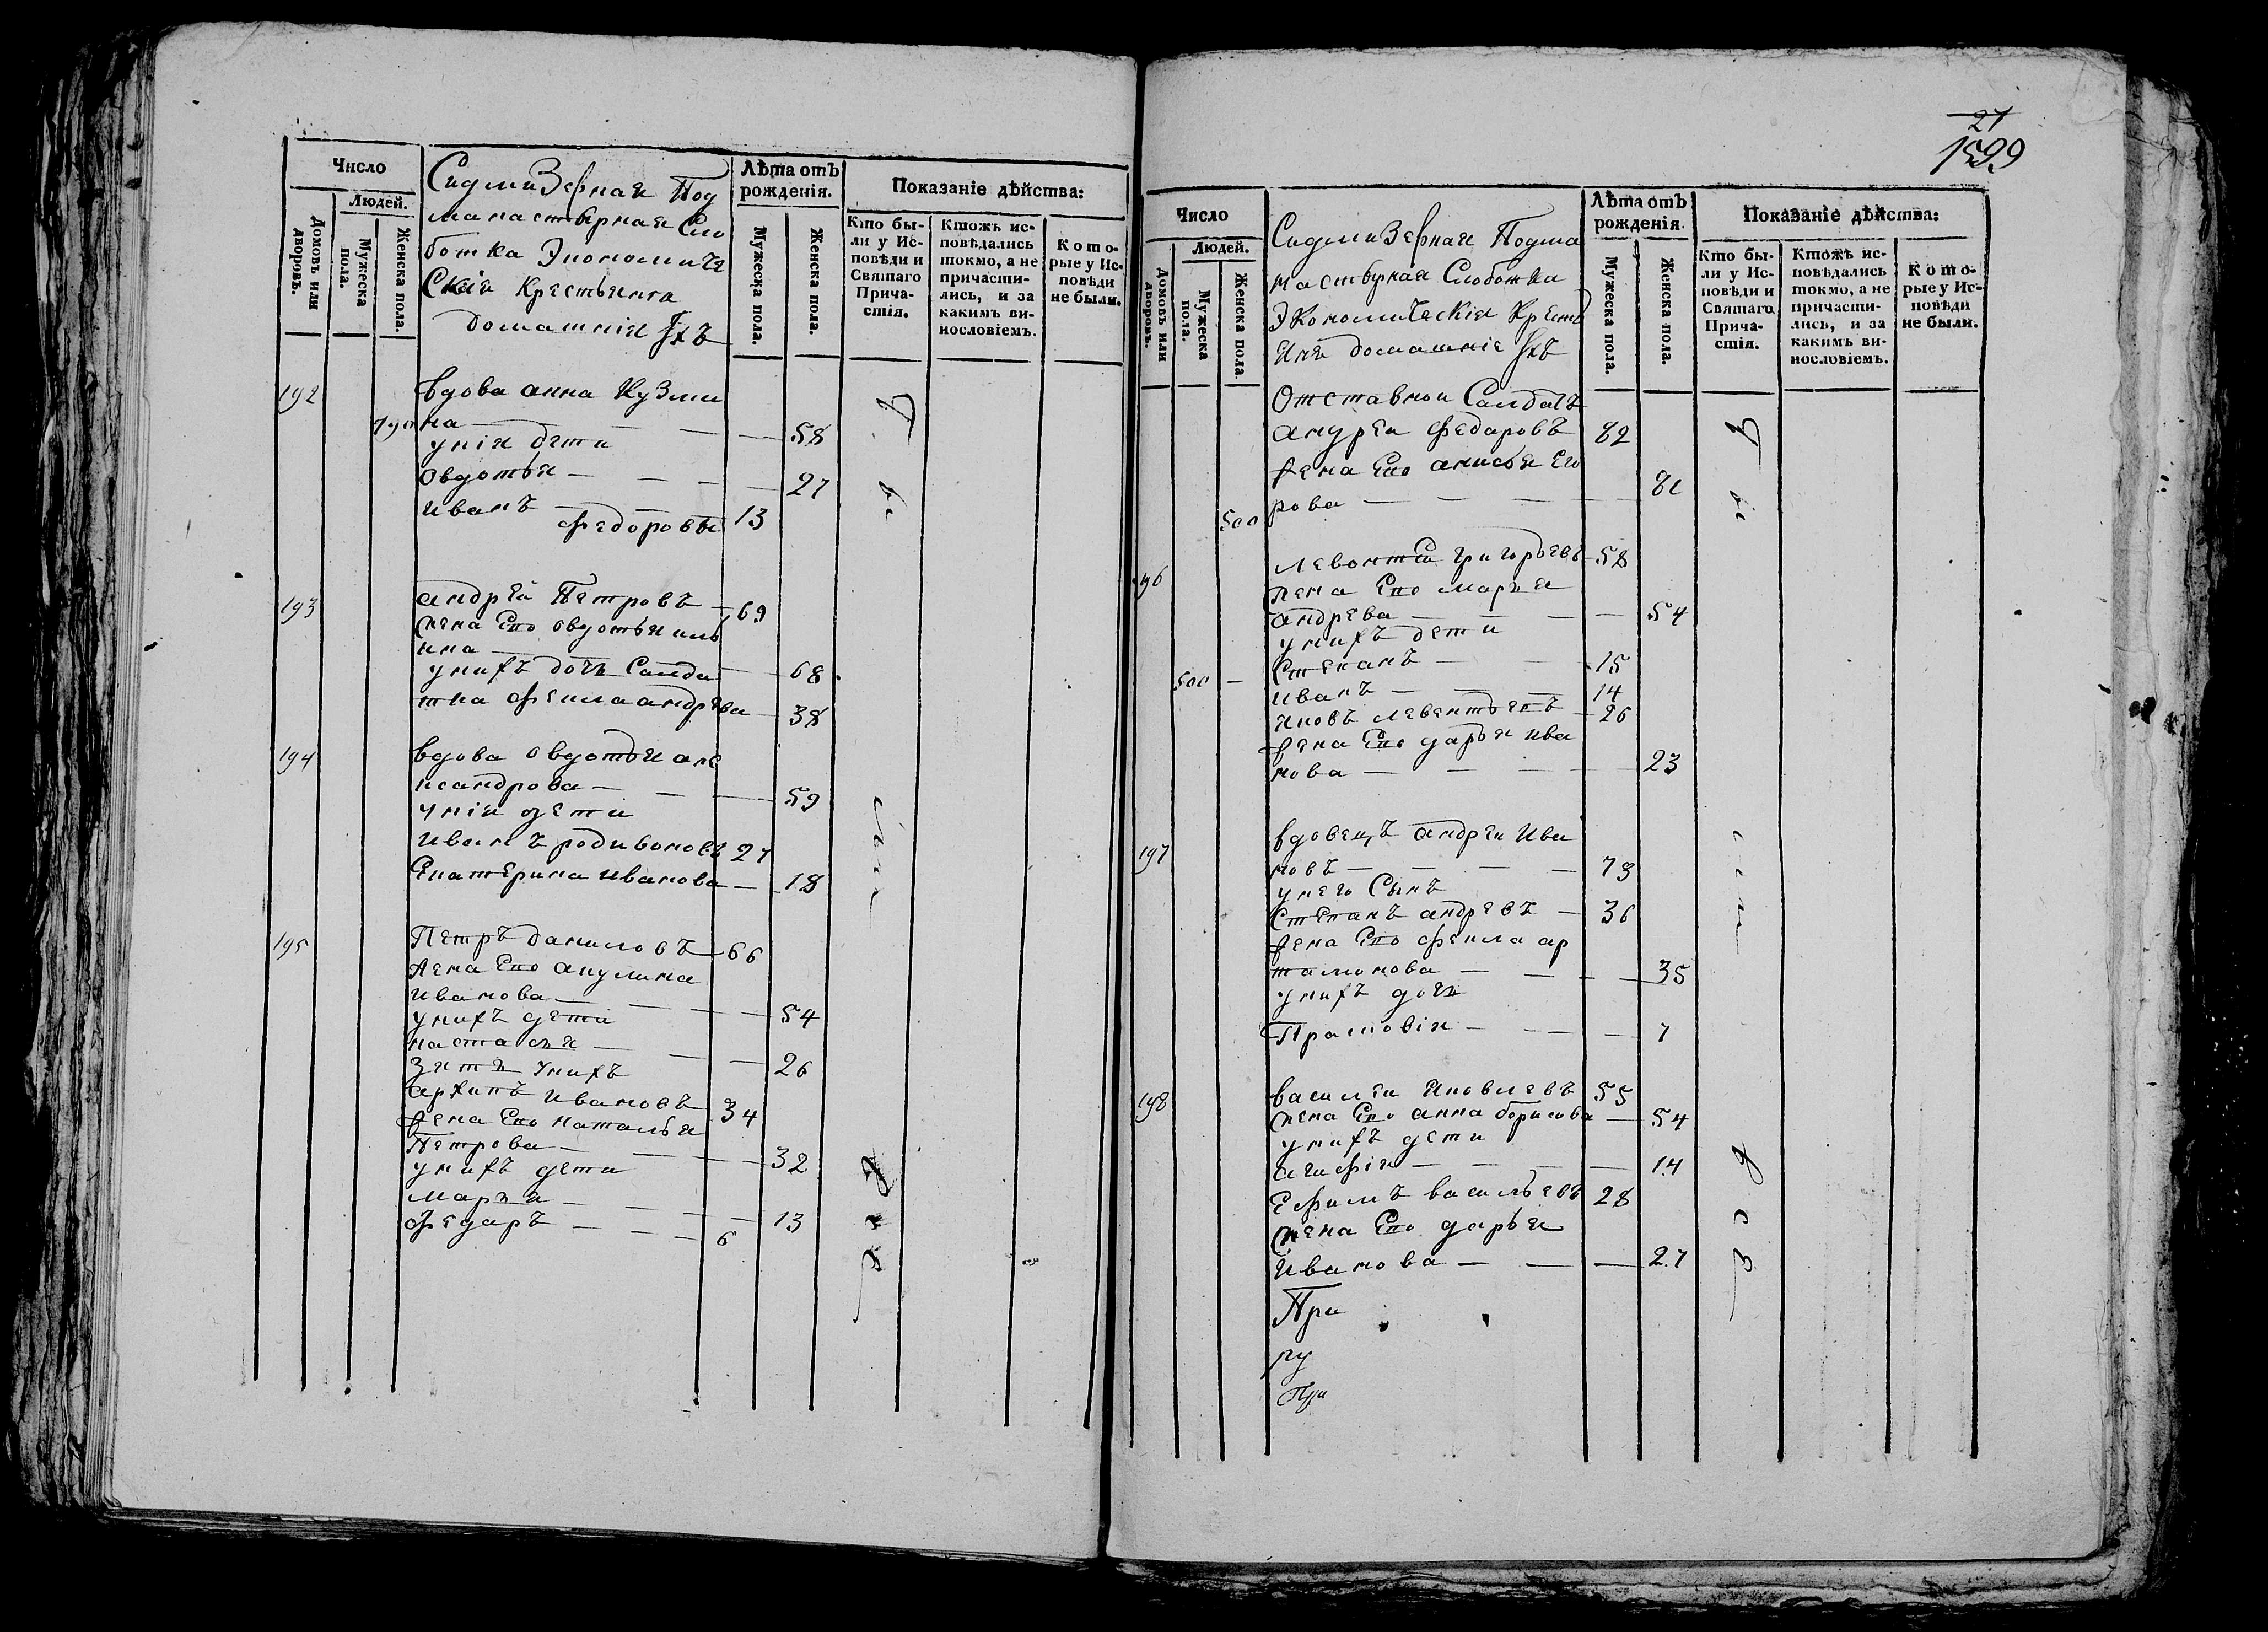 Число
Людей.
Домовъ или дворовъ.
Мужеска пола.
Женска пола.
СидмиЗерная Под
манастырная Сло
ботка Экономиче
Скія Крестьяня
домашнія Ихъ
Лѣта отъ рожденія.
Мужеска пола.
Женска пола.
Показаніе дѣйства:
Кто бы-
ли у Ис-
повѣди и
Святаго
Прича-
стія.
Ктожъ ис-
повѣдались
токмо, а не
причасти-
лись, и за
какимъ ви-
нословіемъ.
Кото-
рые у Ис-
повѣди
не были.
192 вдова анна Кузми
490 на — 58
унія дети
Овдотья — 27
иванъ — 13
федоровы
193 андрей Петровъ — 69
жена Его овдотья иль
ина —
унихъ дочь Салда — 68
тка фекла андрева — 38
194 вдова овдотья але
ксандрова — 59
унія дети
иванъ родивоновъ 27
Екатерина иванова — 18
195 Петръ даниловъ 66
жена Его акулина
иванова — 54
унихъ дети
настасья — 26
Зять унихъ
архипъ ивановъ 34
жена Его наталья
Петрова — 32
унихъ дети
марья — 13
федаръ — 6
21
1599
Число
Людей.
Домовъ или дворовъ.
Мужеска пола.
Женска пола.
СидмиЗерная Подма
настырная Слоботка
Экономическія Кресть
яня домашніе Ихъ
Лѣта отъ рожденія.
Мужеска пола.
Женска пола.
Показаніе дѣйства:
Кто бы-
ли у Ис-
повѣди и
Святаго
Прича-
стія.
Ктожъ ис-
повѣдались
токмо, а не
причасти-
лись, и за
какимъ ви-
нословіемъ.
Кото-
рые у Ис-
повѣди
не были.
Отставнои Салдатъ
андреи федаровъ 82
жена Его анисья Его
500 рова — 81
196 Левонтеи григорьевъ 58
жена Его марья
андрева — 54
унихъ дети
500 — Степанъ — 15
иванъ — 14
яковъ левентьевъ — 26
жена Его дарья ива
нова — 23
197 вдовецъ андреи Ива
новъ — 73
унего Сынъ
Степанъ андревъ — 36
жена Его фекла ар
тамонова — 35
унихъ дочь
Прасковія — 7
198 василеи яковлевъ 55
жена Его анна борисова — 54
унихъ дети
агафія — 14
Ефимъ васильевъ 28
жена Его дарья
Иванова — 27
При
ру
При